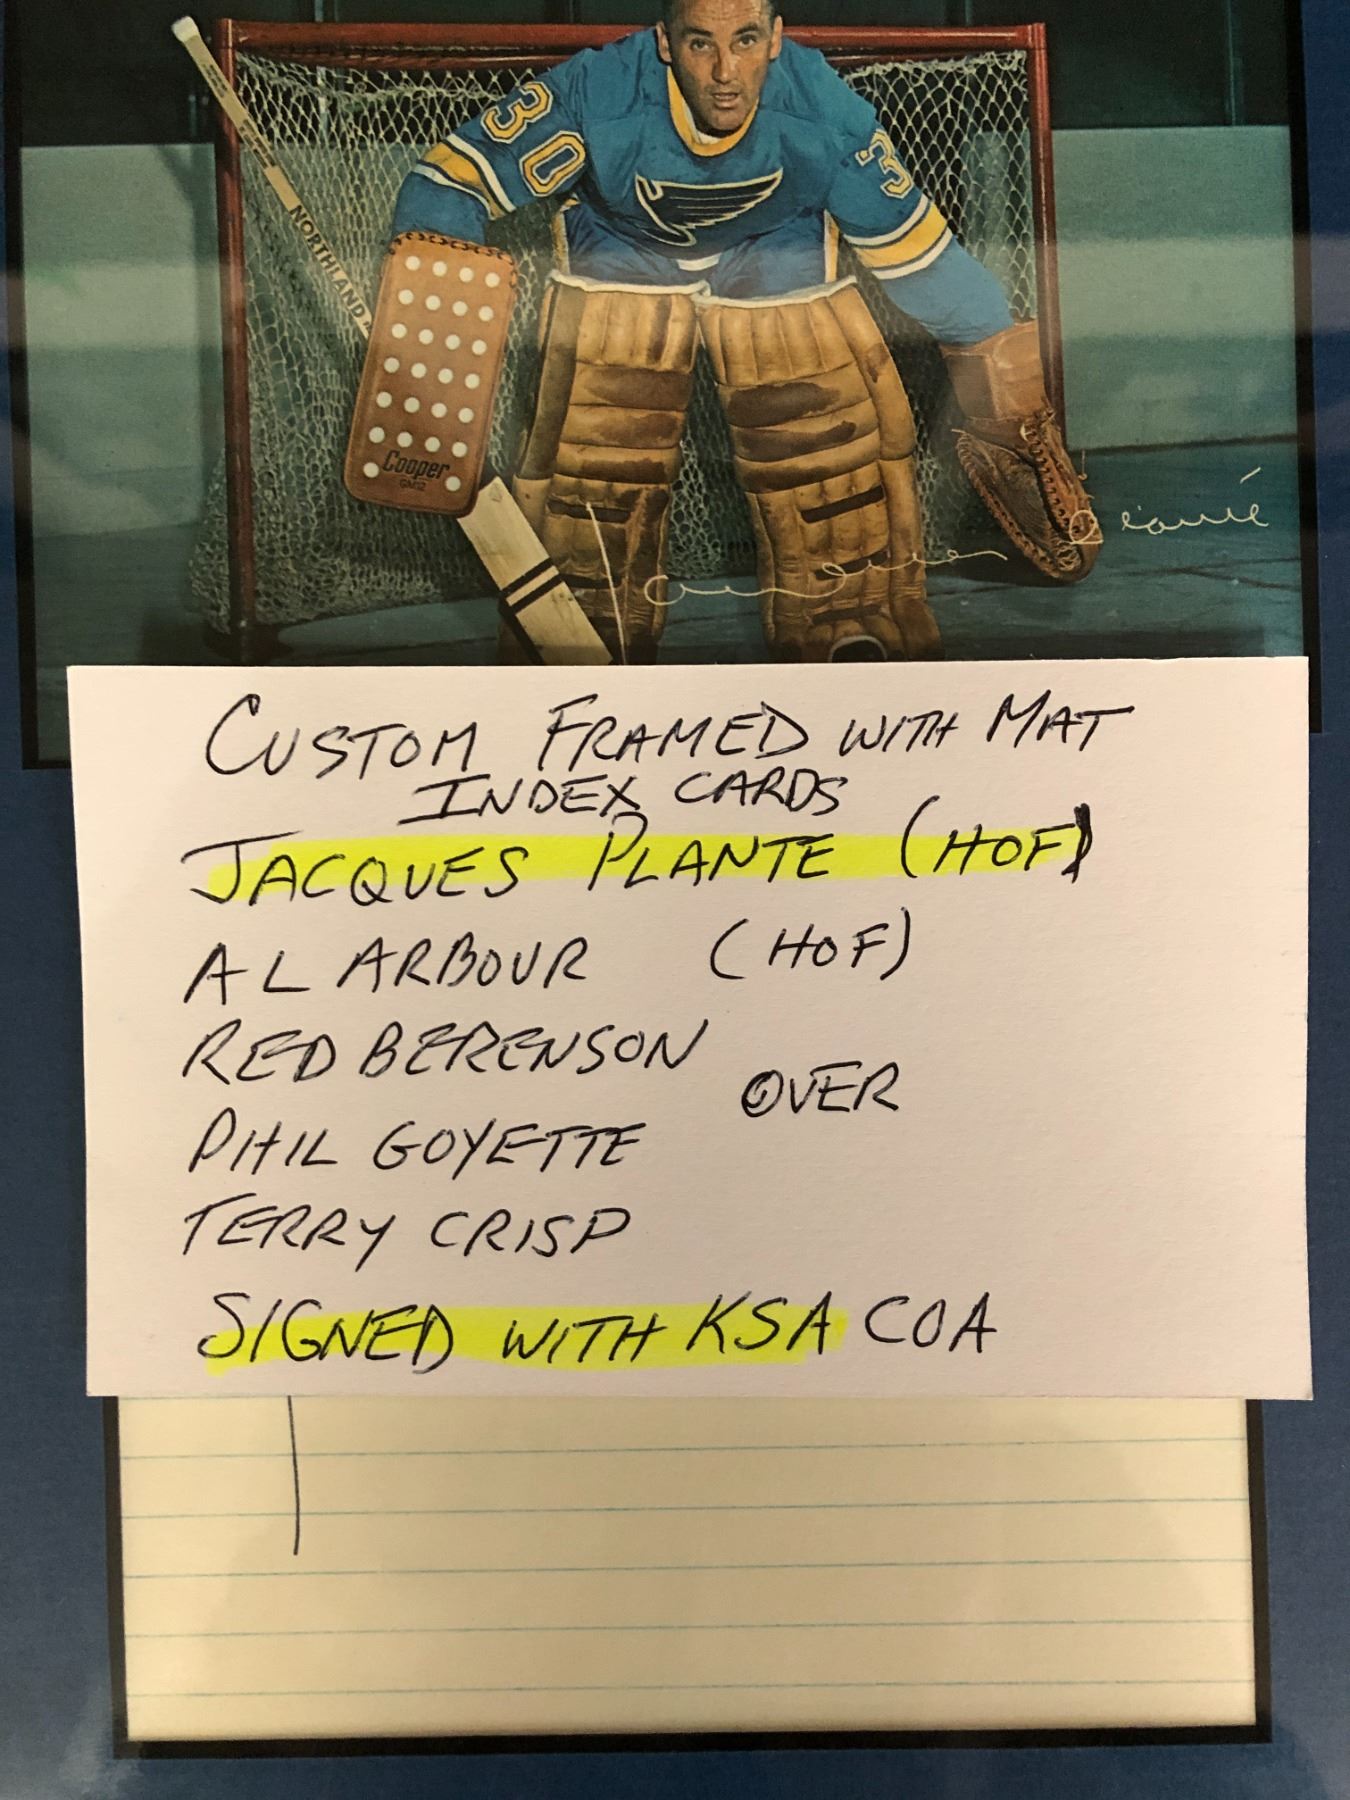 30
3
NORTHLAND
Cooper
GM12
CUSTOM FRAMED WITH MAT
INDEX CARDS
JACQUES PLANTE (HOF)
AL ARBOUR (HOF)
RED BERENSON
OVER
PHIL GOYETTE
TERRY CRISP
SIGNED WITH KSA COA